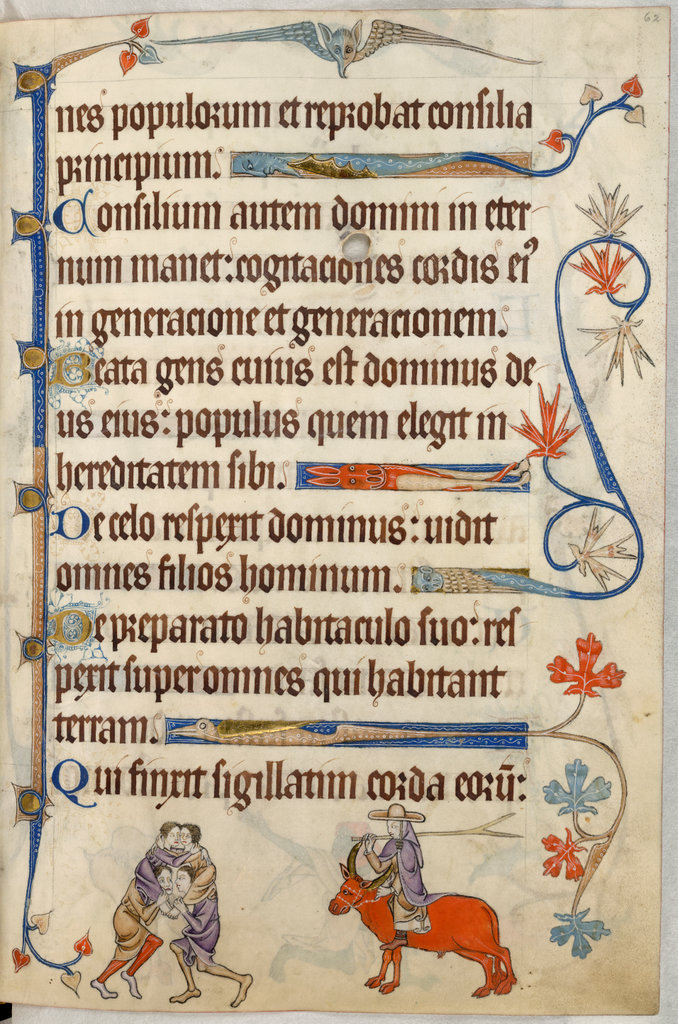 62
nes populorum et reprobat consilia
principium.
Consilium autem domini in eter
num manet: cogitaciones cordis ei᾽
in generacione et generacionem.
Beata gens cuius est dominus de
us eius: populus quem elegit in
hereditatem sibi.
De celo respexit dominus: uidit
omnes filios hominum.
De preparato habitaculo suo: res
pexit super omnes qui habitant
terram.
Qui finxit sigillatim corda eorū: